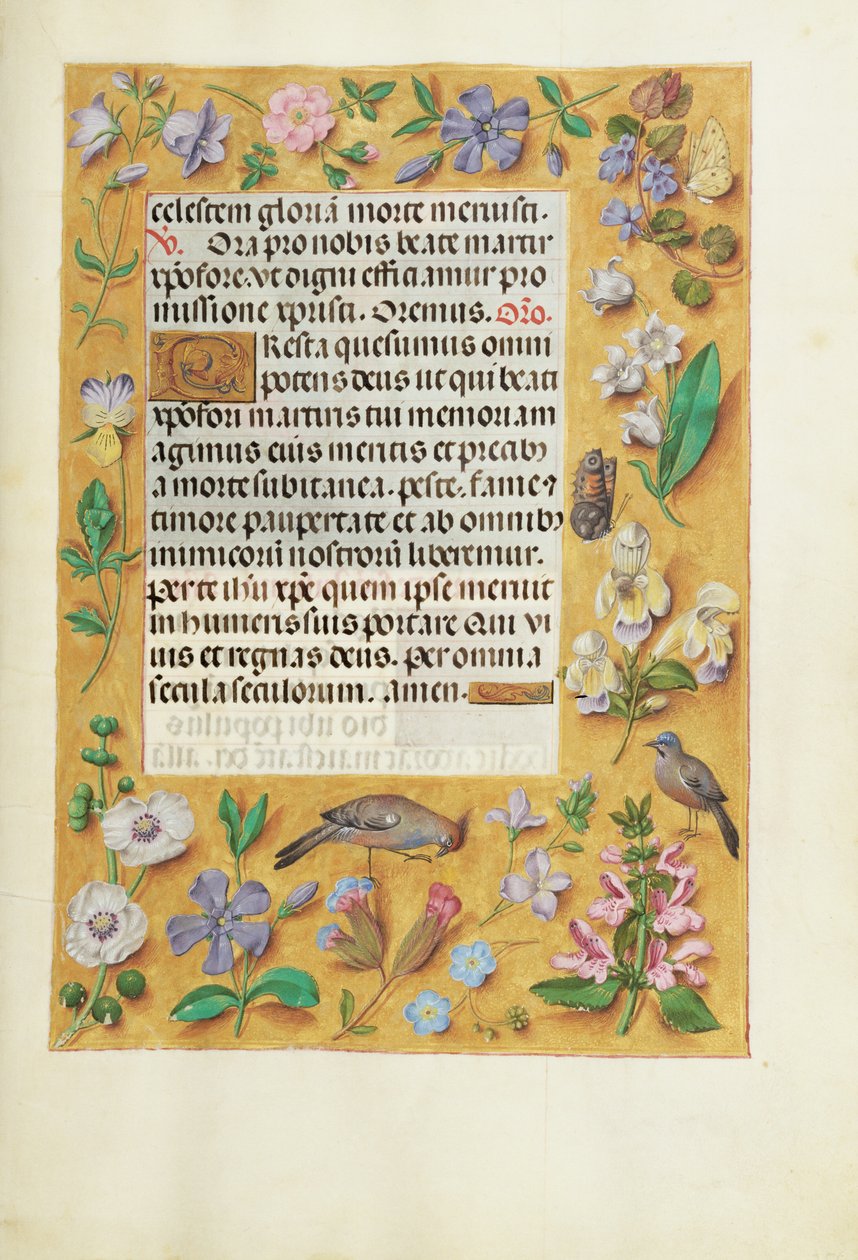 celestem gloriā morte meruisti.
V. Ora pro nobis beate martir
xp̄ofore. vt digni efficiamur pro
missione xpristi. Oremus. Orō.
PResta quesumus omni
potens deus ut qui beati
xp̄ofori martiris tui memoriam
agimus eius meritis et precib9
a morte subitanea. peste. fame ⁊
timore paupertate et ab omnib9
inimicorū nostrorū liberemur.
Per te ih̄u xp̄e quem ipse meruit
in humeris suis portare Qui vi
uis et regnas deus. Per omnia
secula seculorum. amen.